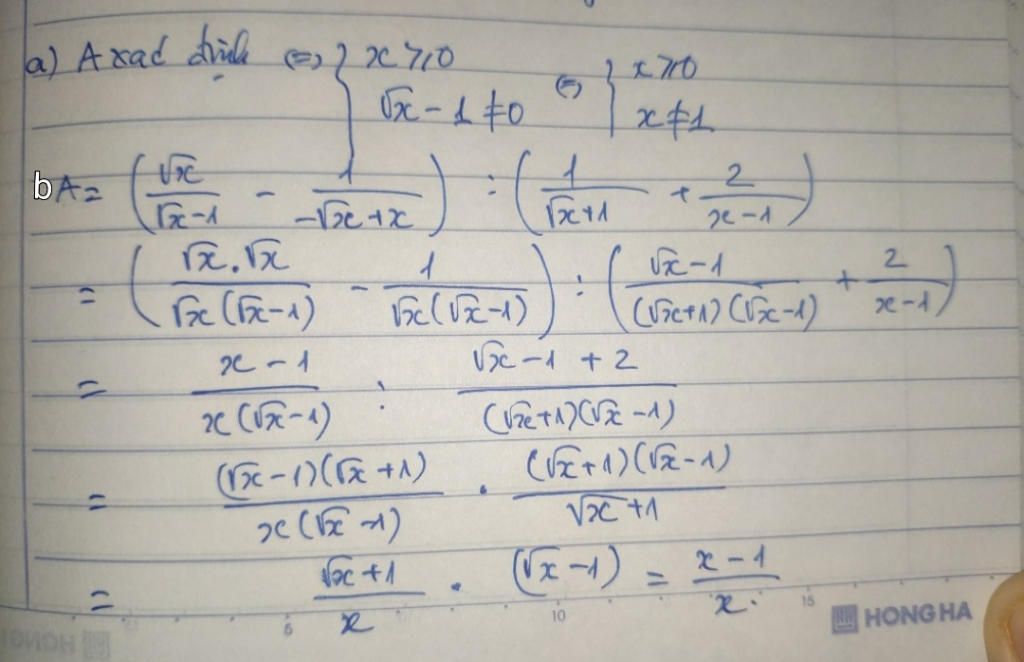 a) A xác định ⇔ { x ≥ 0 ⇔ { x ≥ 0
√x - 1 ≠ 0 x ≠ 1
b A = (√x/(√x-1) - 1/(-√x+x)) : (1/(√x+1) + 2/(x-1))
= (√x.√x/(√x(√x-1)) - 1/(√x(√x-1))) : ((√x-1)/((√x+1)(√x-1)) + 2/(x-1))
= (x-1)/(x(√x-1)) : (√x-1+2)/((√x+1)(√x-1))
= (√x-1)(√x+1)/(x(√x-1)) . (√x+1)(√x-1)/(√x+1)
= (√x+1)/x . (√x-1) = (x-1)/x.
5 10 15
HONG HA